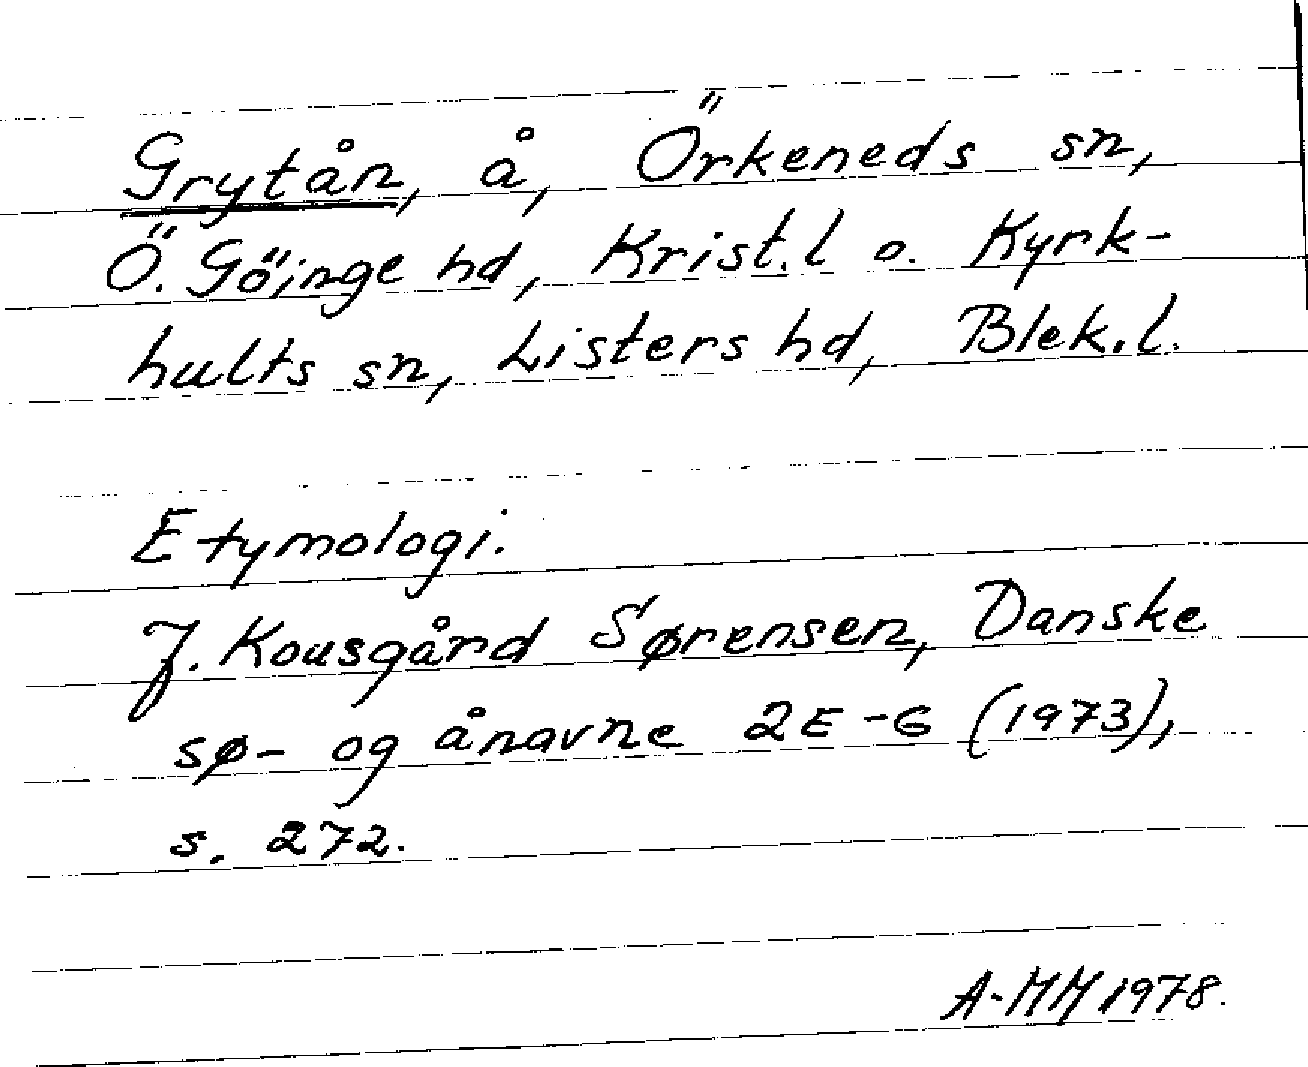 Grytån, å, Örkeneds sn,
Ö. Göinge hd, Krist.l o. Kyrk-
hults sn, Listers hd, Blek.l.
Etymologi.
J. Kousgård Sørensen, Danske
sø- og ånavne 2E-G (1973),
s. 272.
A-MM 1978.